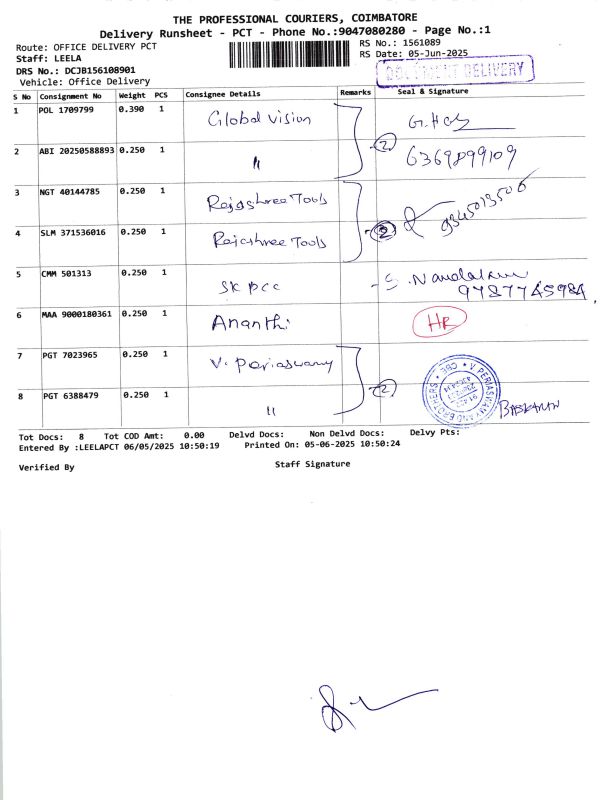 THE PROFESSIONAL COURIERS, COIMBATORE
Delivery Runsheet - PCT - Phone No.:9047080280 - Page No.:1
Route: OFFICE DELIVERY PCT
RS No.: 1561089
Staff: LEELA
RS Date: 05-Jun-2025
DRS No.: DCJB156108901
DOCUMENT DELIVERY
Vehicle: Office Delivery
S No Consignment No Weight PCS Consignee Details Remarks Seal & Signature
1 POL 1709799 0.390 1 Global Vision
2 ABI 20250588893 0.250 1 " 2 6369899109
3 NGT 40144785 0.250 1 Rajashree Tools 9345013506
4 SLM 371536016 0.250 1 Rajashree Tools 2
5 CMM 501313 0.250 1 SK PCC S. Nandakumar
9787745984
6 MAA 9000180361 0.250 1 Ananthi HR
7 PGT 7023965 0.250 1 V. Periaswamy
8 PGT 6388479 0.250 1 " 2 BASKARAN
V PERIASWAMY AND BROTHERS CBE
Tot Docs: 8 Tot COD Amt: 0.00 Delvd Docs: Non Delvd Docs: Delvy Pts:
Entered By :LEELAPCT 06/05/2025 10:50:19 Printed On: 05-06-2025 10:50:24
Verified By Staff Signature